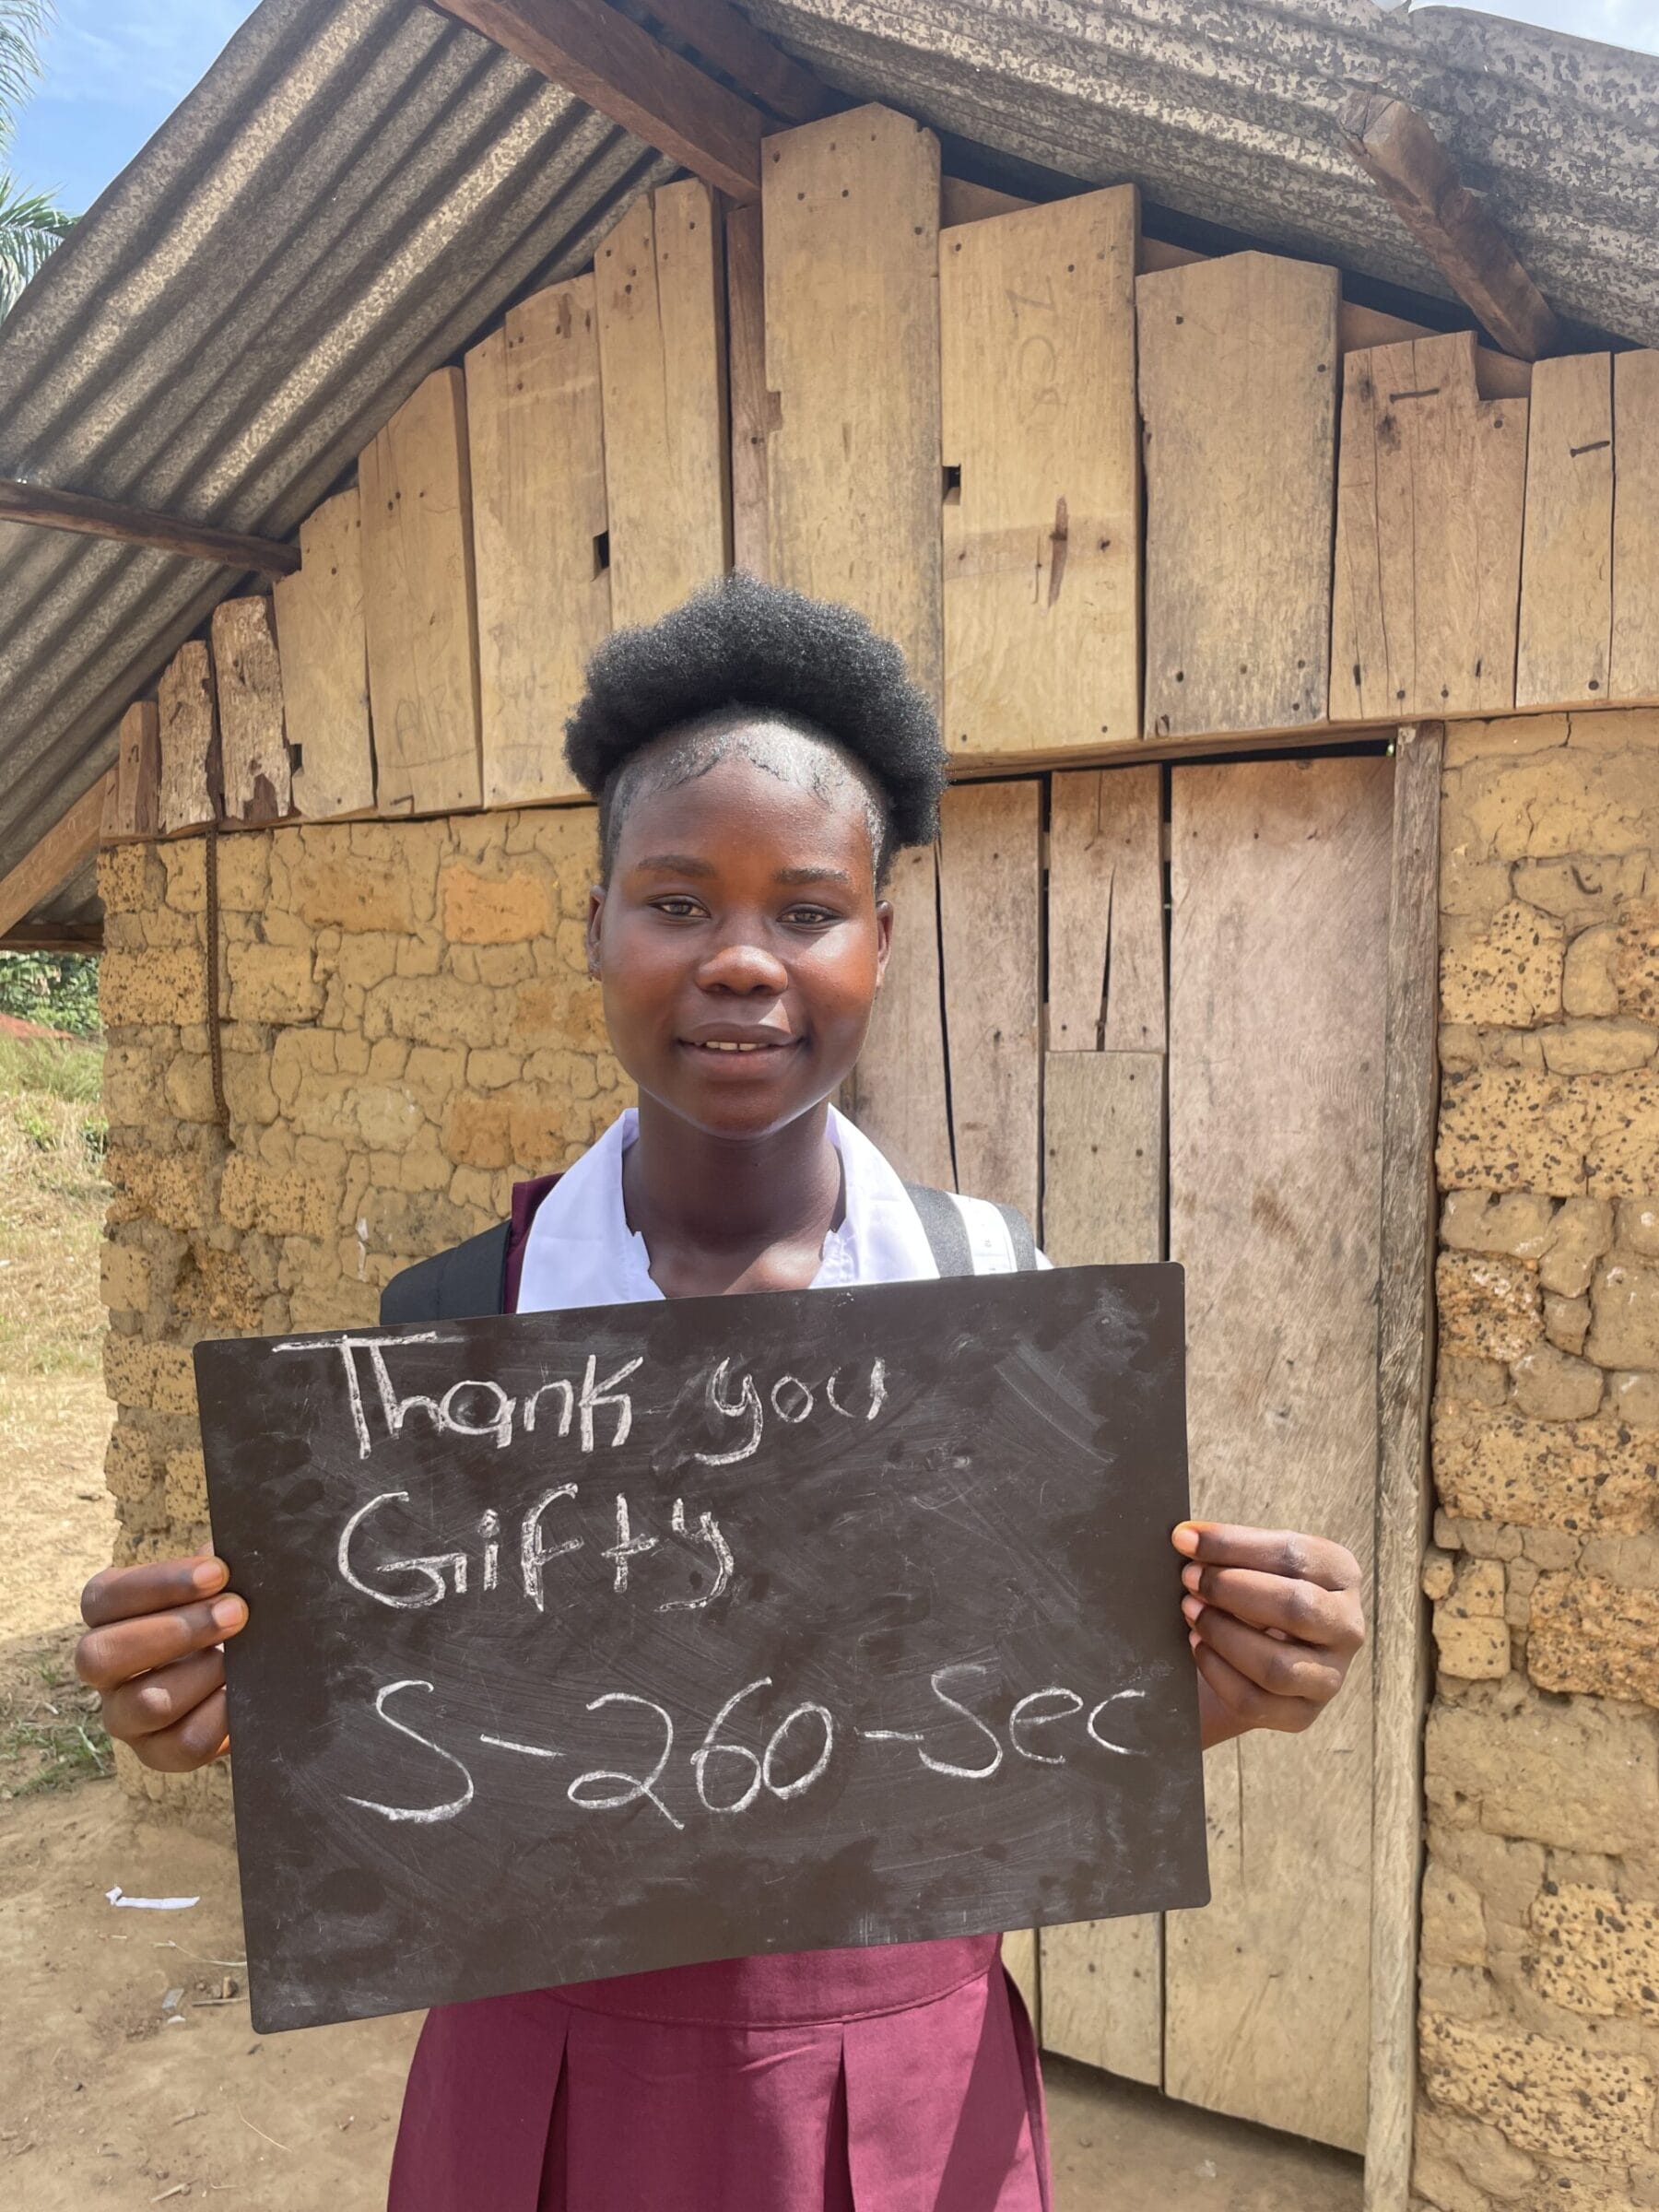 Thank you
Gifty
S-260-Sec